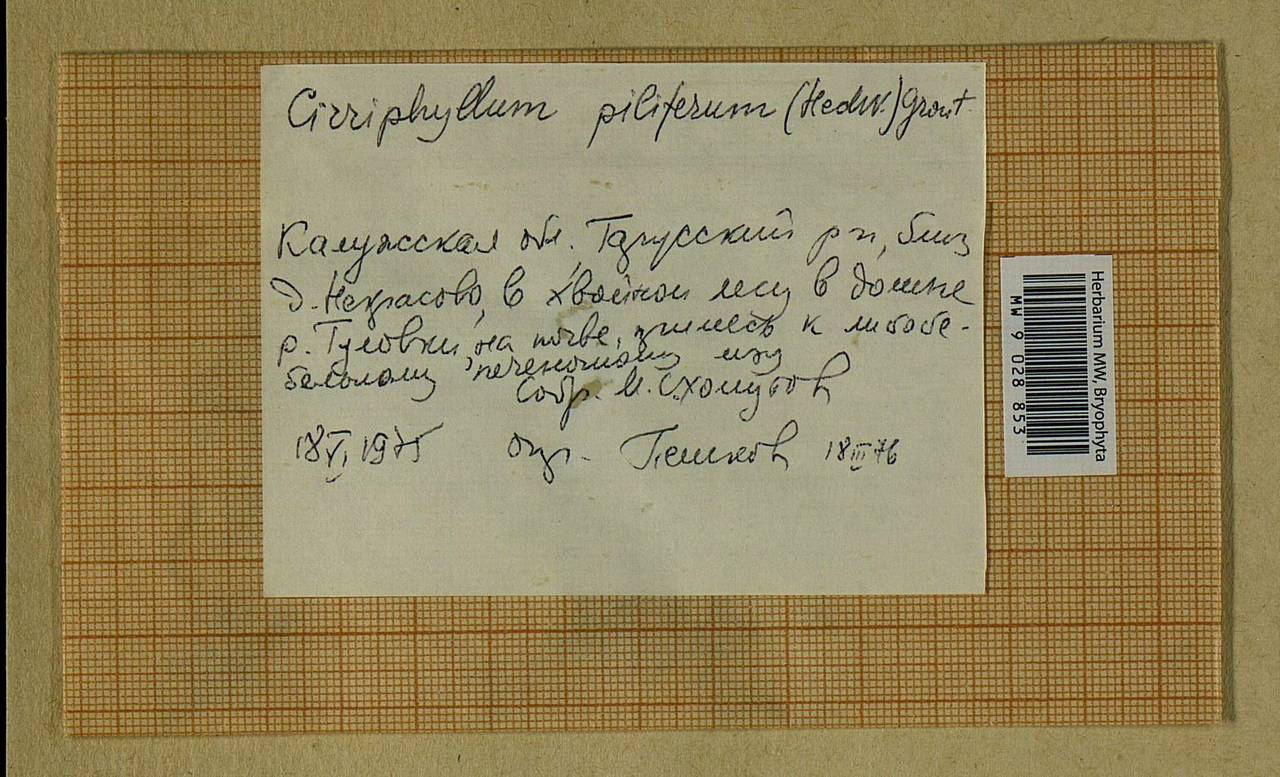 Cirriphyllum piliferum (Hedw.) Grout.
Калужская обл., Тарусский р-н, близ
д. Некрасово, в хвойном лесу в долине
р. Туловки, на почве, примесь к
Собр. М. С. Хомутов
18 V 1975 Опр. 18 III 76
Herbarium MW, Bryophyta
MW 9 028 853